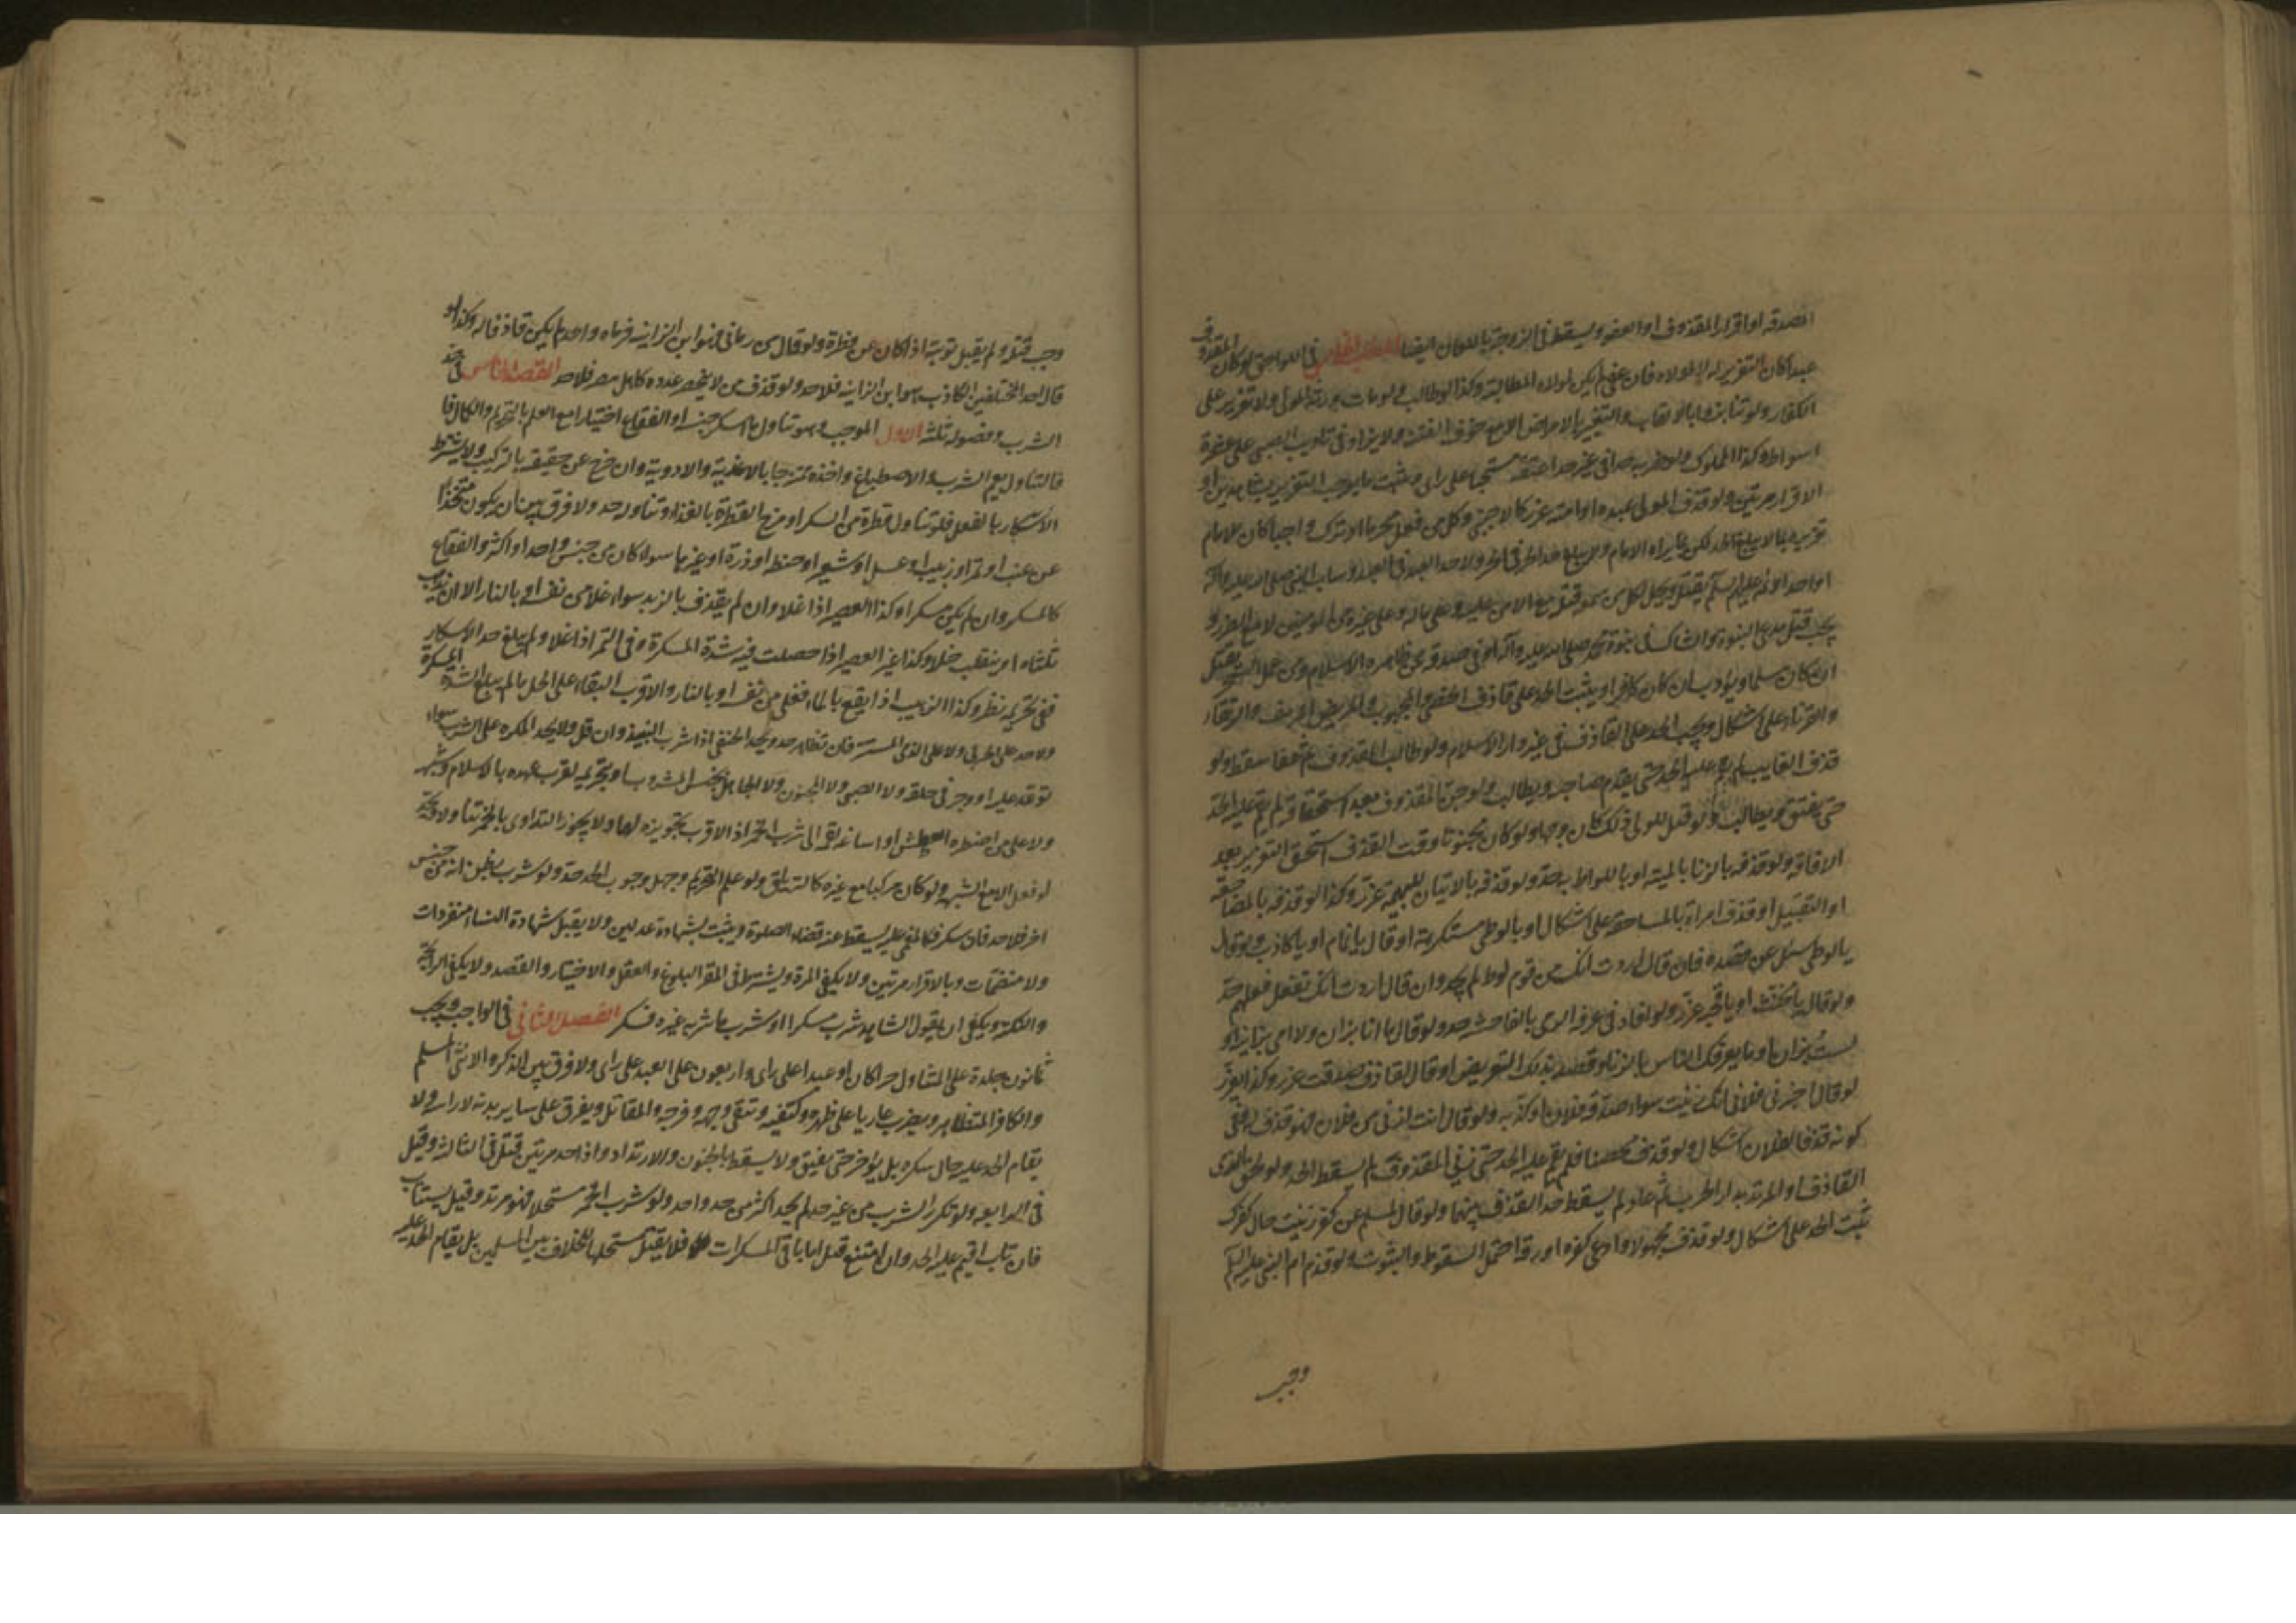 المصدقة او اقرار المقذوف او العفو ويسقط في الزوجة باللعان ايضا المطلب الخامس في اللواحق لو كان المقذوف
عبدا كان التعزير له لا لمولاه فان عفى لم يكن لمولاه المطالبة وكذا لو طالب ولو مات ورثه المولى ولا تعزير على
الكفار لو تنابزوا بالالقاب والتعيير بالامراض الا مع خوف الفتنة ولا يزاد في تاديب الصبي على عشرة
اسواط وكذا المملوك ولو ضربه حدا في غير حد اعتقه مستحبا على راى ويثبت ما يوجب التعزير بشاهدين او
الاقرار مرتين ولو قذف المولى عبده او امته عزر كالاجنبي وكل من فعل محرما او ترك واجبا كان للامام
تعزيره بما لا يبلغ الحد لكن بما يراه الامام ولا يبلغ حد الحر في الحر ولا حد العبد في العبد وساب النبي صلى الله عليه وآله
او احد الائمة عليهم السلم يقتل ويحل لكل من سمعه قتله مع الامن عليه وعلى ماله وعلى غيره من المؤمنين لا مع الضرر و
يجب قتل مدعى النبوة والشاك في نبوة محمد صلى الله عليه وآله او في صدقه ممن ظاهره الاسلام ومن عمل السحر يقتل
ان كان مسلما ويؤدب ان كان كافرا ويثبت الحد على قاذف الخصى والمجبوب والمريض المدنف والرتقاء
والقرناء على اشكال ويجب الحد على القاذف في غير دار الاسلام ولو طالب المقذوف ثم عفا سقط ولو
قذف الغايب لم يقم عليه الحد حتى يقدم صاحبه ويطالب ولو جن المقذوف بعد استحقاقه لم يقم عليه الحد
حتى يفيق ويطالب ولو قيل للولى ذلك كان وجها ولو كان مجنونا وقت القذف استحق التعزير بعد
الافاقة ولو قذفه بالزنا بالميتة او باللواط به حد ولو قذفه بالاتيان للبهيمة عزر وكذا لو قذفه بالمضاجعة
او التقبيل او قذف امراة بالمساحقة على اشكال او بالوطى مستكرهة او قال يا نمام او يا كاذب ولو قال
يا لوطى سئل عن قصده فان قال اردت انك من قوم لوط لم يحد وان قال اردت انك تفعل فعلهم حد
ولو قال يا مخنث او يا قحبه عزر ولو افاد في عرفه الرمى بالفاحشة حد ولو قال ما انا بزان ولا امى بزانية او
لست بزان او ما يعرفك الناس بالزنا وقصد بذلك التعريض او قال القاذف صدقت عزر وكذا يعزر
لو قال اخبرنى فلان انك زنيت سواء صدقه فلان او كذبه ولو قال انت ازنى من فلان فهو قذف له وفى
كونه قذفا لفلان اشكال ولو قذف محصنا فلم يقم عليه الحد حتى زنى المقذوف لم يسقط الحد ولو لحق الذمى
القاذف او المرتد بدار الحرب ثم عاد لم يسقط حد القذف عنهما ولو قال لمسلم عن كفر زنيت حال كفرك
ثبت الحد على اشكال ولو قذف مجهولا وادعى كفره او رقه احتمل السقوط والثبوت ولو قذف ام النبى عليه السلم
وجب
وجب قتله ولم يقبل توبته اذا كان عن فطرة ولو قال من رمانى فهو ابن الزانية فرماه واحد لم يكن قاذفا له وكذا لو
قال احد المختلفين الكاذب هو ابن الزانية فلا حد ولو قذف من لا ينحصر عدده كاهل مصر فلا حد المقصد الخامس في حد
الشرب وفصوله ثلثة الاول الموجب وهو تناول ما اسكر جنسه او الفقاع اختيارا مع العلم بالتحريم والكمال فا
فالتناول يعم الشرب والاصطباغ واخذه ممتزجا بالاغذية والادوية وان خرج عن حقيقته بالتركيب ولا يشترط
الاسكار بالفعل فلو تناول قطرة من المسكر او مزج القطرة بالغذاء وتناوله حد ولا فرق بين ان يكون متخذا
عن عنب او تمر او زبيب او عسل او شعير او حنطة او ذرة او غيرها سواء كان من جنس واحد او اكثر والفقاع
كالمسكر وان لم يكن مسكرا وكذا العصير اذا غلا وان لم يقذف بالزبد سواء غلا من نفسه او بالنار الا ان يذهب
ثلثاه او ينقلب خلا وكذا غير العصير اذا حصلت فيه الشدة المسكرة وفى التمر اذا غلا ولم يبلغ حد الاسكار
ففى تحريمه نظر وكذا الزبيب اذا نقع بالماء فغلى من نفسه او بالنار والاقرب البقاء على الحل ما لم يبلغ الشدة المسكرة
ولا حد على الحربى ولا على الذمى المستتر فان تظاهر حد ويحد الحنفى اذا شرب النبيذ وان قل ولا يحد المكره على الشرب سواء
توعد عليه او وجر في حلقه ولا الصبى ولا المجنون ولا الجاهل بجنس المشروب او بتحريمه لقرب عهده بالاسلام وشبهه
ولا على من اضطره العطش او اساغة لقمة الى شرب الخمر اذ الاقرب تجويزه لهما ولا يجوز التداوى بالخمر تناولا
او فعل الا مع الشبهة ولو كان مركبا مع غيره كالترياق ولو علم التحريم وجهل وجوب الحد حد ولو شرب بظن انه من جنس
اخر فلا حد فان سكر فكالمغمى عليه يسقط عنه قضاء الصلوة ويثبت بشهادة عدلين ولا يقبل شهادة النساء منفردات
ولا منضمات وبالاقرار مرتين ولا يكفى المرة ويشترط في المقر البلوغ والعقل والاختيار والقصد ولا يكفى الرايحة
والنكهة ويكفى ان يقول الشاهد شرب مسكرا او شرب ما شربه غيره فسكر الفصل الثانى في الواجب ويجب
ثمانون جلدة على المتناول حرا كان او عبدا على راى واربعون على العبد على راى ولا فرق بين الذكر والانثى والمسلم
والكافر المتظاهر ويضرب عاريا على ظهره وكتفيه وتتقى وجهه وفرجه والمقاتل ويفرق على ساير بدنه لا راسه ولا
يقام الحد عليه حال سكره بل يؤخر حتى يفيق ولا يسقط بالجنون والارتداد واذا حد مرتين قتل في الثالثة وقيل
فى الرابعه ولو تكرر الشرب من غير حد لم يحد اكثر من حد واحد ولو شرب الخمر مستحلا فهو مرتد وقيل يستتاب
فان تاب اقيم عليه الحد وان امتنع قتل اما باقى المسكرات فلا يقتل مستحلها للخلاف بين المسلمين بل يقام الحد عليه